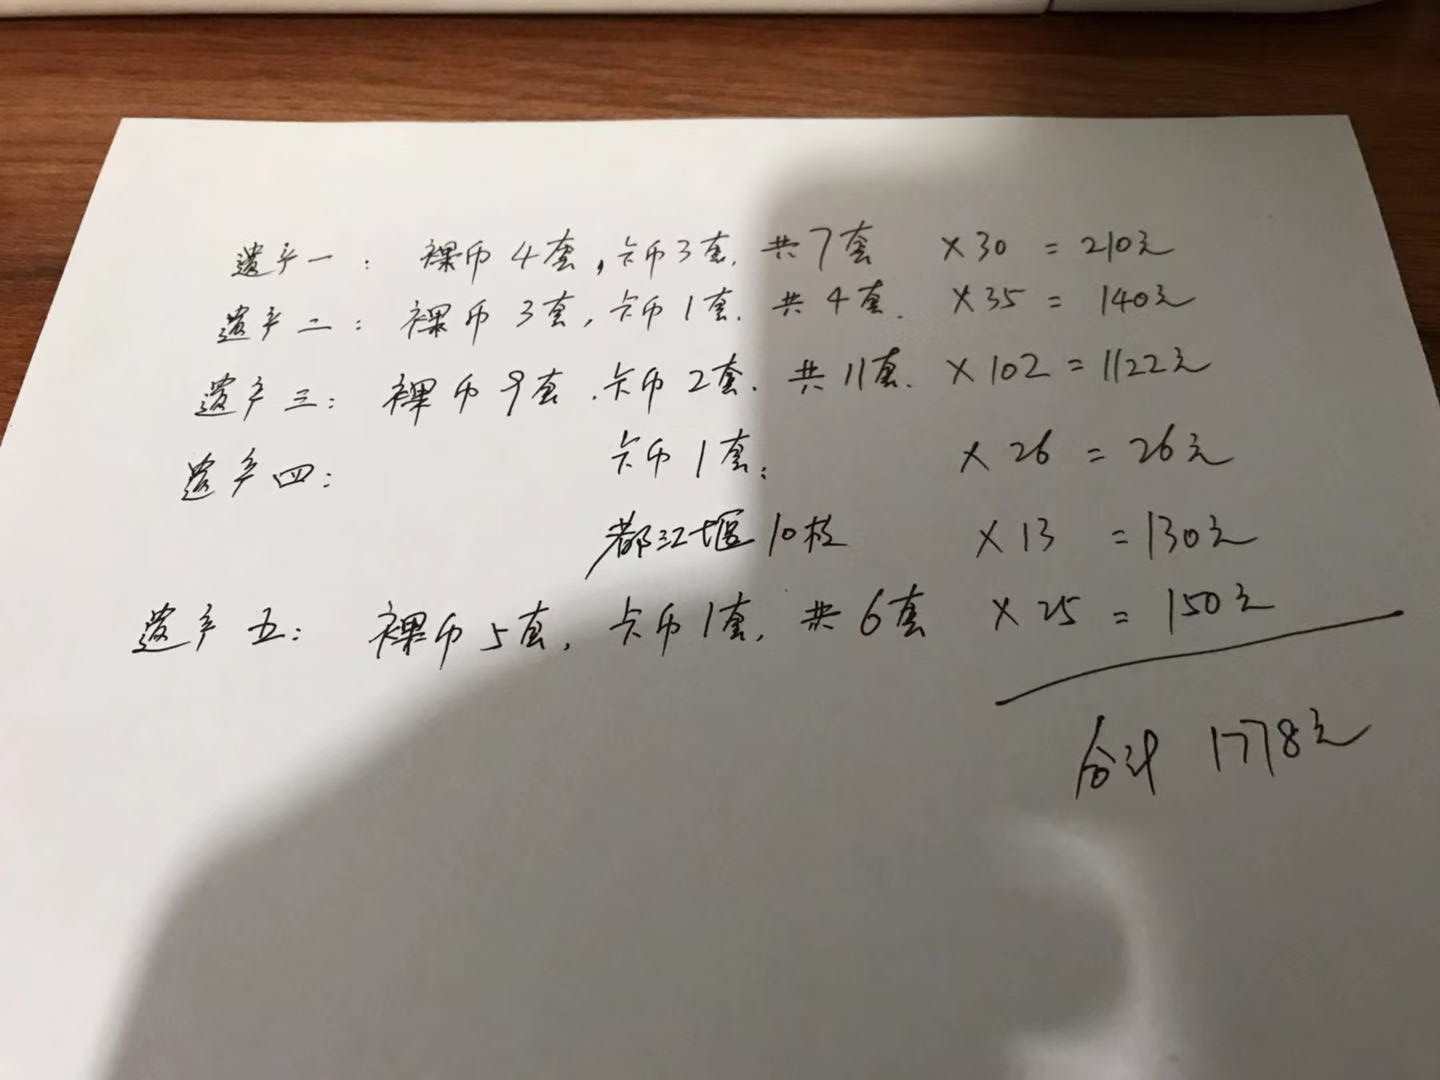 遗产一： 裸币4套，卡币3套. 共7套 ×30 = 210元
遗产二： 裸币3套，卡币1套. 共4套. ×35 = 140元
遗产三： 裸币9套.卡币2套. 共11套. ×102 = 1122元
遗产四： 卡币1套； ×26 = 26元
都江堰10枚 ×13 = 130元
遗产五： 裸币5套，卡币1套，共6套 ×25 = 150元
合计 1778元